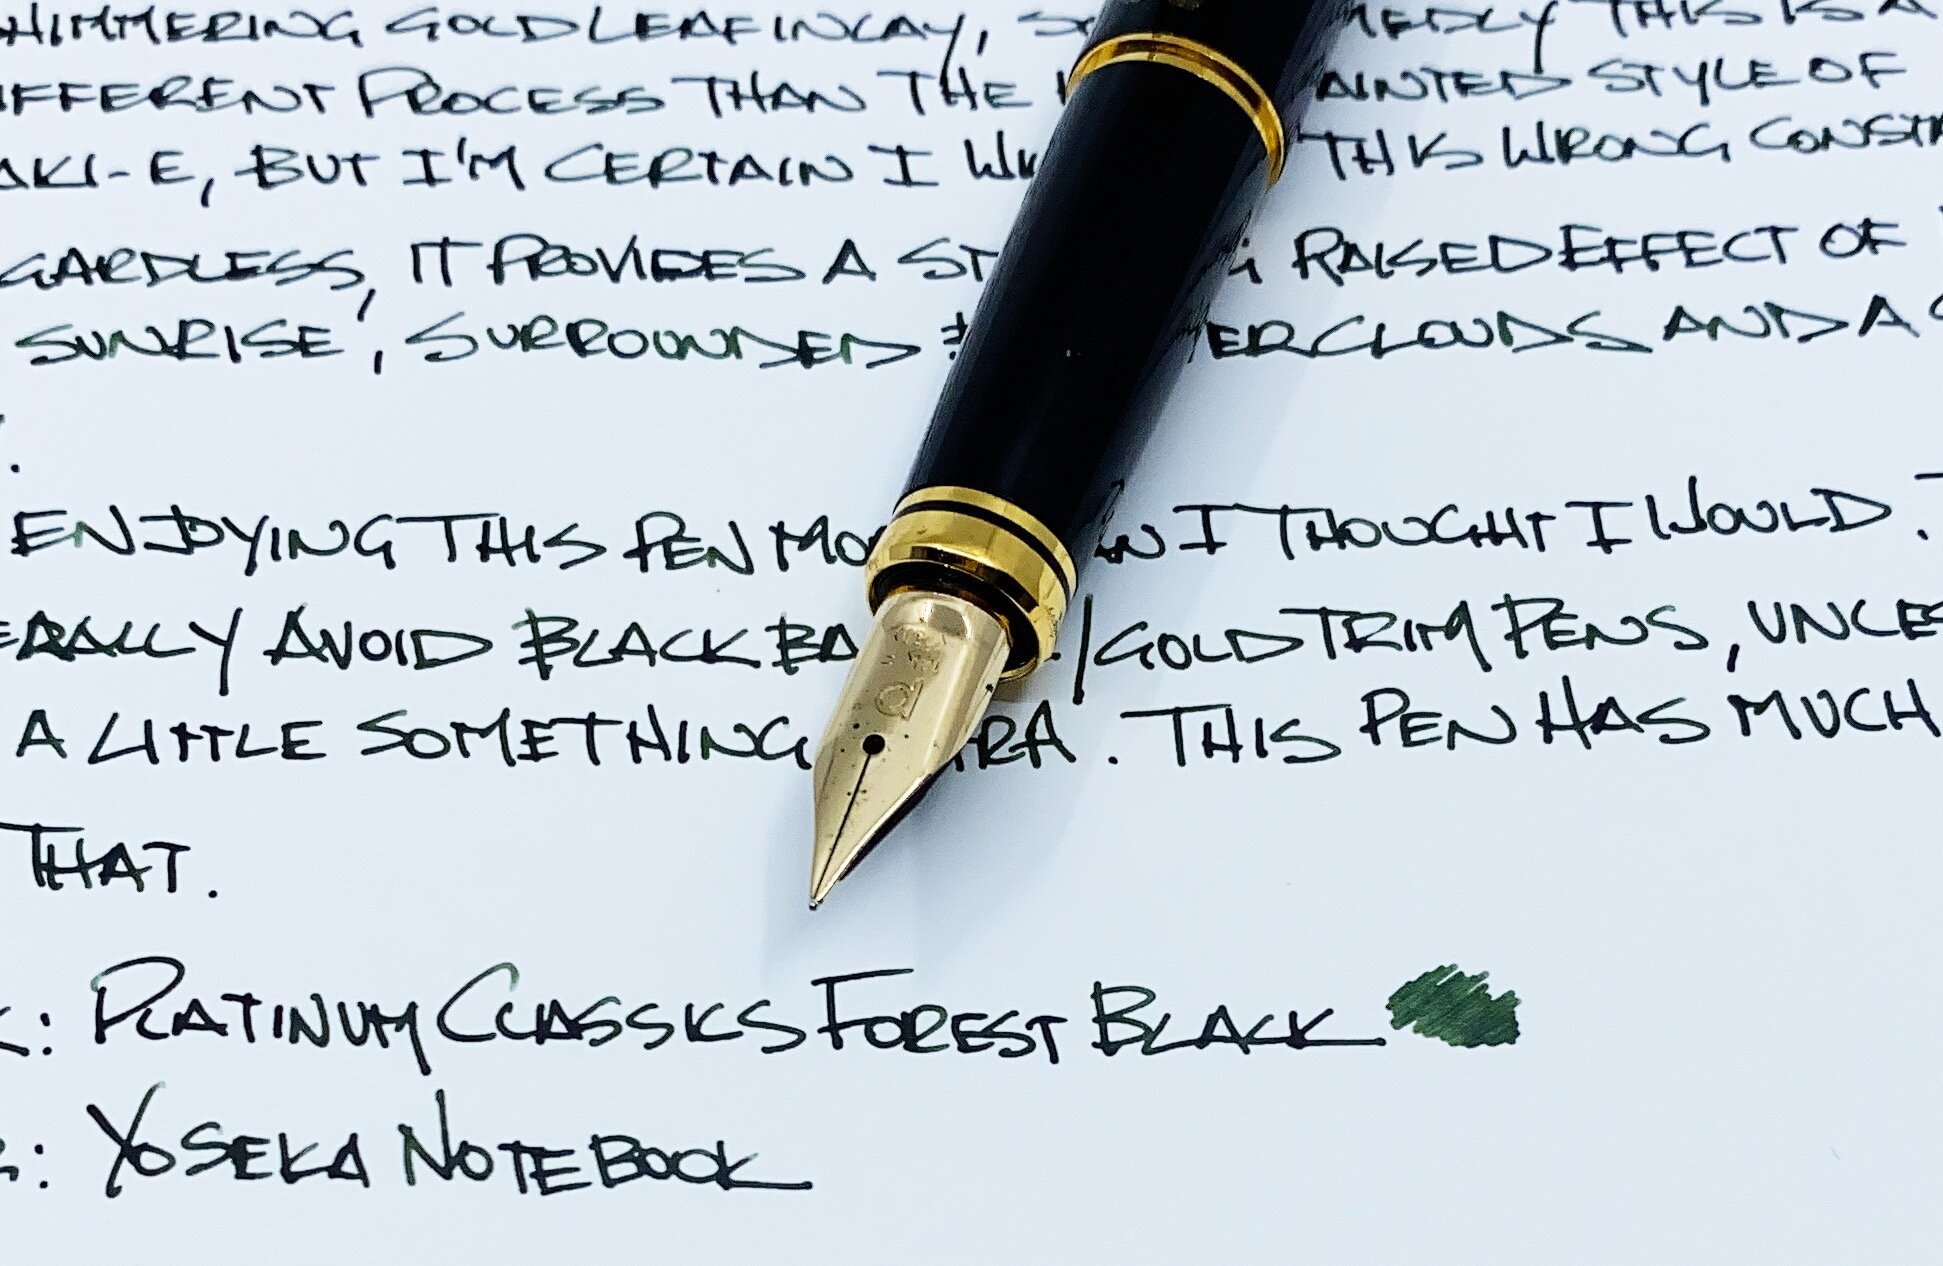 SHIMMERING GOLD LEAF INLAY, THIS IS A
DIFFERENT PROCESS THAN THE PAINTED STYLE OF
MAKI-E, BUT I'M CERTAIN I THIS WRONG
REGARDLESS, IT PROVIDES A RAISED EFFECT OF
SUNRISE', SURROUNDED CLOUDS AND A
ENJOYING THIS PEN MORE THAN I THOUGHT I WOULD.
GENERALLY AVOID BLACK /GOLD TRIM PENS, UNLESS
A LITTLE SOMETHING EXTRA. THIS PEN HAS MUCH
THAT.
: PLATINUM CLASSICS FOREST BLACK
: YOSEKA NOTEBOOK